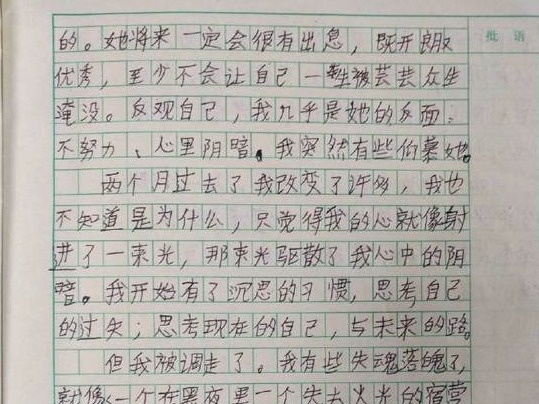 批 语
的。她将来一定会很有出息，既开朗又
优秀，至少不会让自己一生被芸芸众生
淹没。反观自己，我几乎是她的反面：
不努力、心里阴暗。我突然有些羡慕她。
两个月过去了我改变了许多，我也
不知道是为什么，只觉得我的心就像射
进了一束光，那束光驱散了我心中的阴
暗。我开始有了沉思的习惯，思考自己
的过失；思考现在的自己，与未来的路。
但我被调走了。我有些失魂落魄了，
就像一个在黑夜里一个失去火光的宿营